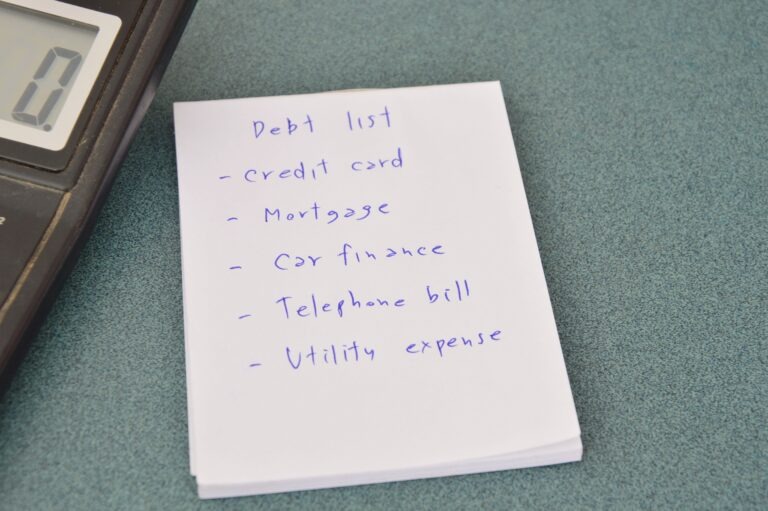 Debt list
- Credit card
- Mortgage
- Car finance
- Telephone bill
- Utility expense
0.